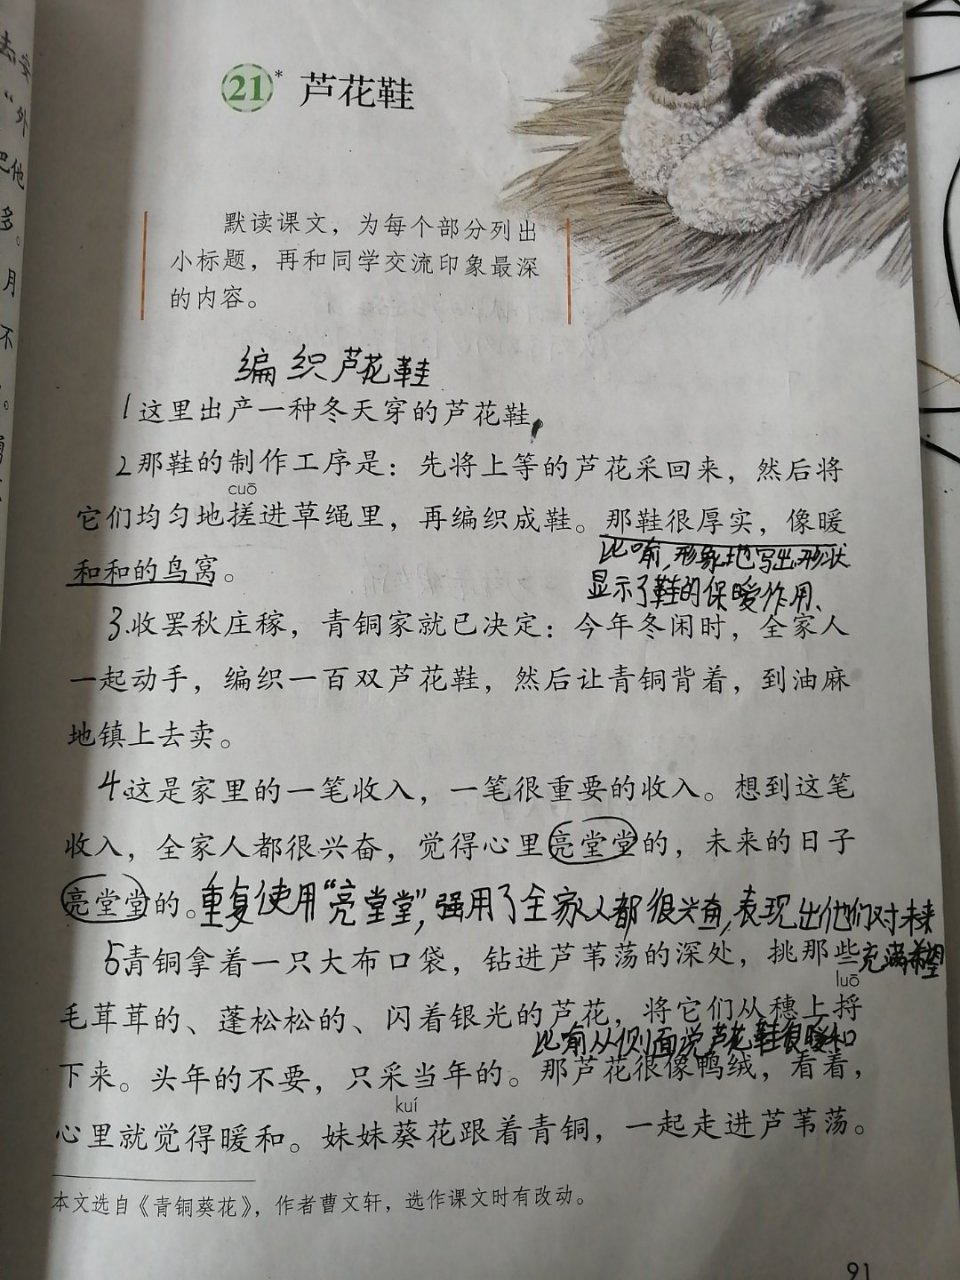 21* 芦花鞋
默读课文，为每个部分列出
小标题，再和同学交流印象最深
的内容。
编织芦花鞋
1这里出产一种冬天穿的芦花鞋，
2那鞋的制作工序是：先将上等的芦花采回来，然后将
cuō
它们均匀地搓进草绳里，再编织成鞋。那鞋很厚实，像暖
比喻，形象地写出形状
和和的鸟窝。
显示了鞋的保暖作用、
3.收罢秋庄稼，青铜家就已决定：今年冬闲时，全家人
一起动手，编织一百双芦花鞋，然后让青铜背着，到油麻
地镇上去卖。
4这是家里的一笔收入，一笔很重要的收入。想到这笔
收入，全家人都很兴奋，觉得心里亮堂堂的，未来的日子
亮堂堂的。重复使用“亮堂堂”，强用了全家人都很兴奋，表现出他们对未来
5青铜拿着一只大布口袋，钻进芦苇荡的深处，挑那些充满希望
luō
毛茸茸的、蓬松松的、闪着银光的芦花，将它们从穗上捋
比喻从侧面说芦花鞋很暖和
下来。头年的不要，只采当年的。那芦花很像鸭绒，看着，
kuí
心里就觉得暖和。妹妹葵花跟着青铜，一起走进芦苇荡。
本文选自《青铜葵花》，作者曹文轩，选作课文时有改动。
91
去安
“外
把他
多。
月
不
。